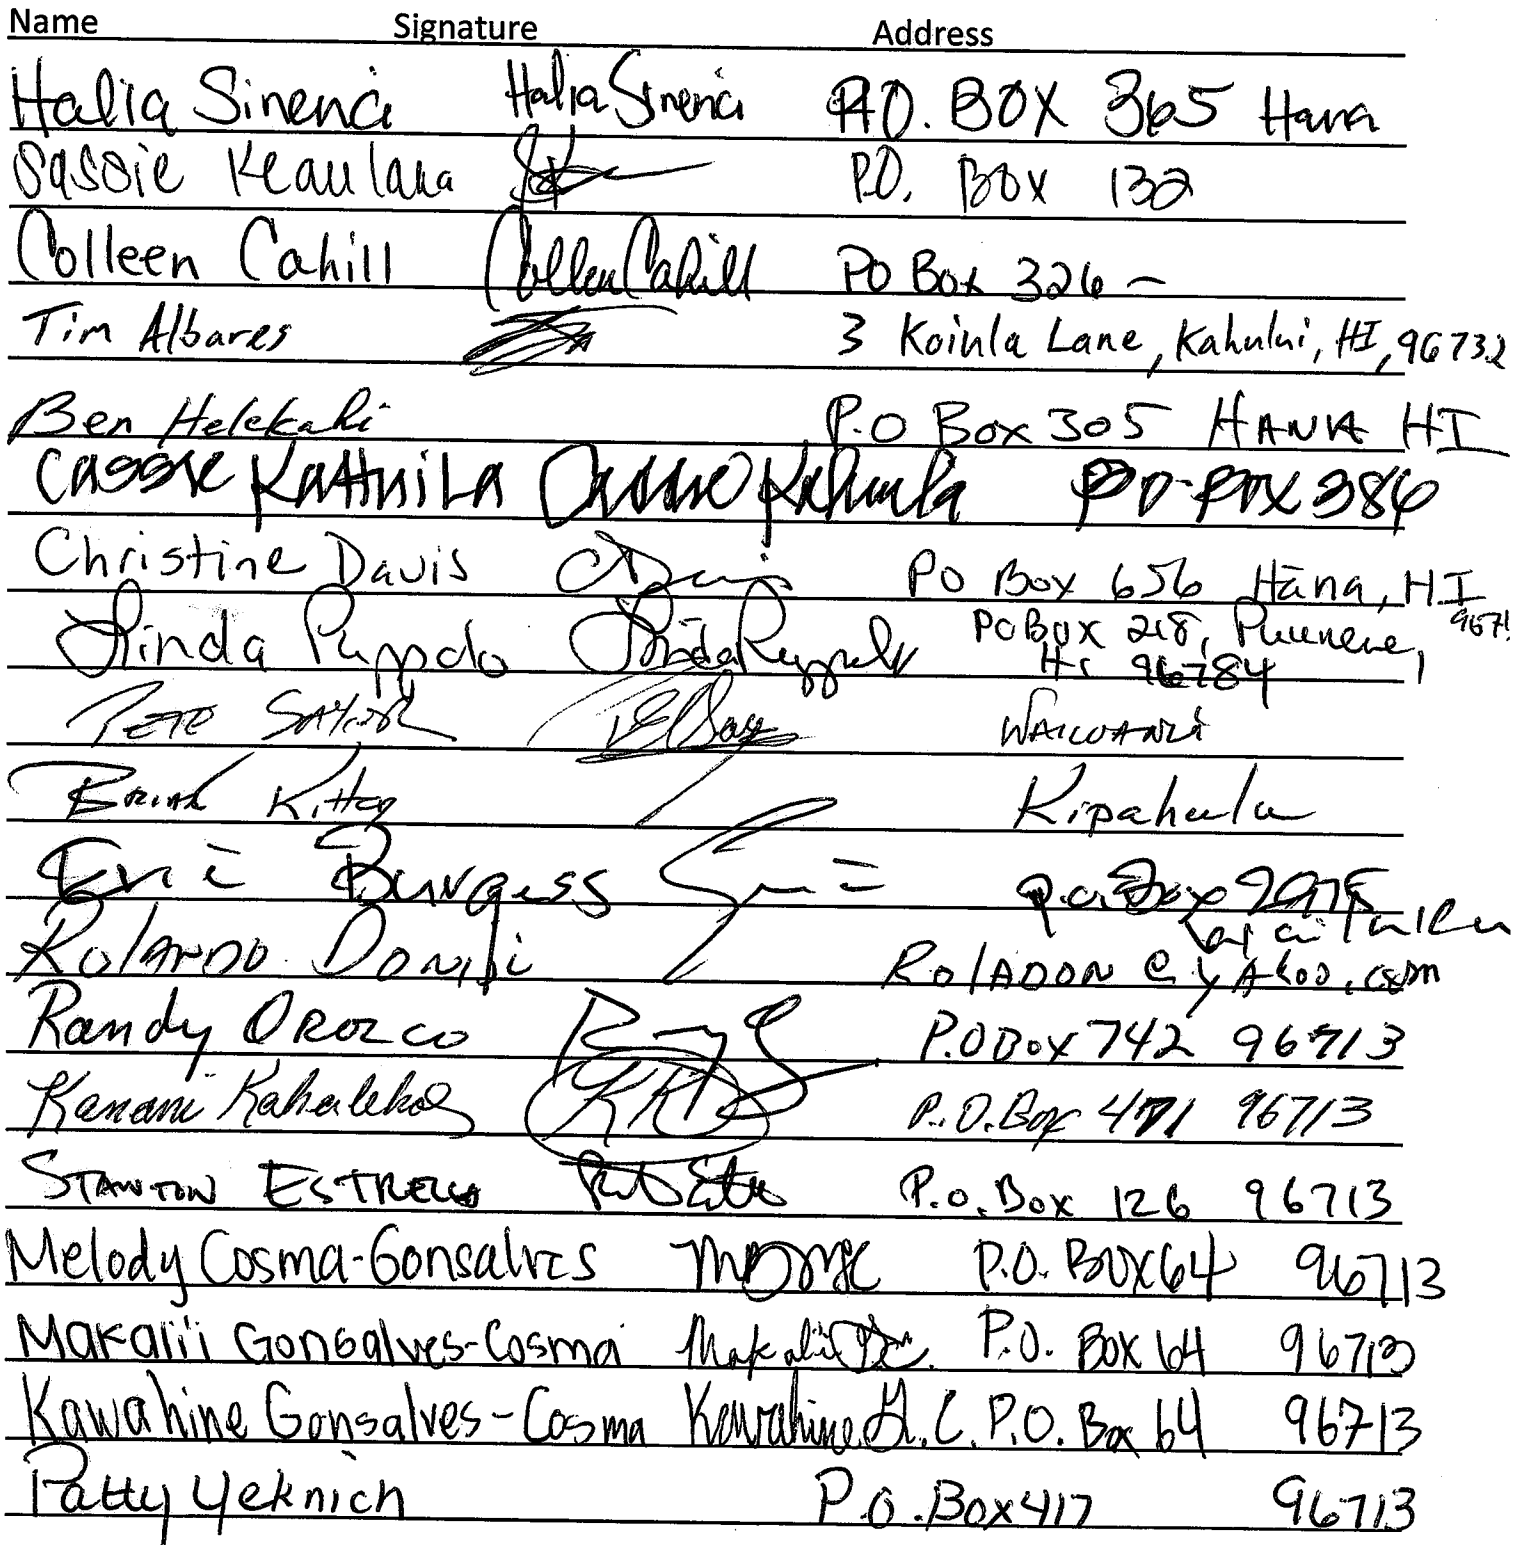 Name Signature Address
Halia Sinenci Halia Sinenci P.O. BOX 365 Hana
Sassie Keaulana P.O. BOX 132
Colleen Cahill Colleen Cahill PO Box 326 -
Tim Albares 3 Koinla Lane, Kahului, HI, 96732
Ben Helekahi P.O Box 305 HANA HI
Cassie Kahuila Cassie Kahuila PO BOX 386
Christine Davis PO Box 656 Hāna, HI
967!
Linda Puppolo Linda Puppolo PO Box 218, Puunene,
Hi 96784
PETE
Brian Kipahulu
Eric Burgess P.O. Box
ROLANDO ROLADON @ YAHOO.COM
Randy OROZCO P.O Box 742 96713
Kanani P.O. Box 471 96713
STANTON ESTRELLA P.O. Box 126 96713
Melody Cosma-Gonsalves P.O. BOX 64 96713
Makalii Gonsalves-Cosma Makalii P.O. Box 64 96713
Kawahine Gonsalves-Cosma Kawahine G. C. P.O. Box 64 96713
Patty Yeknich P.O. Box 417 96713